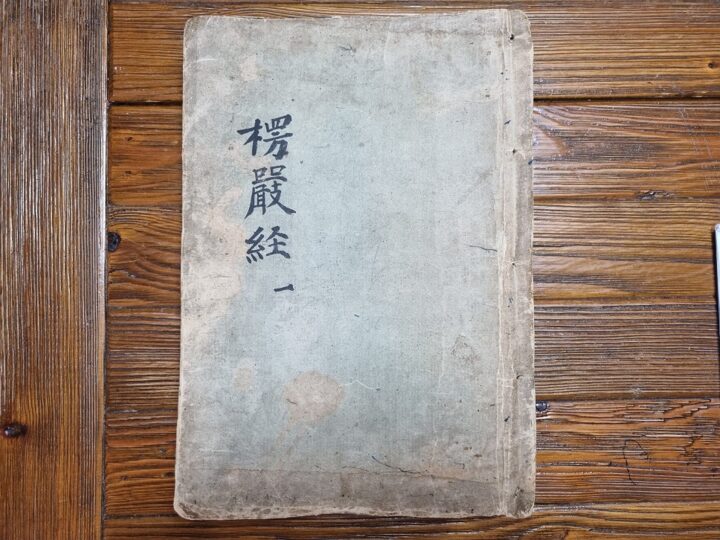 楞嚴経一